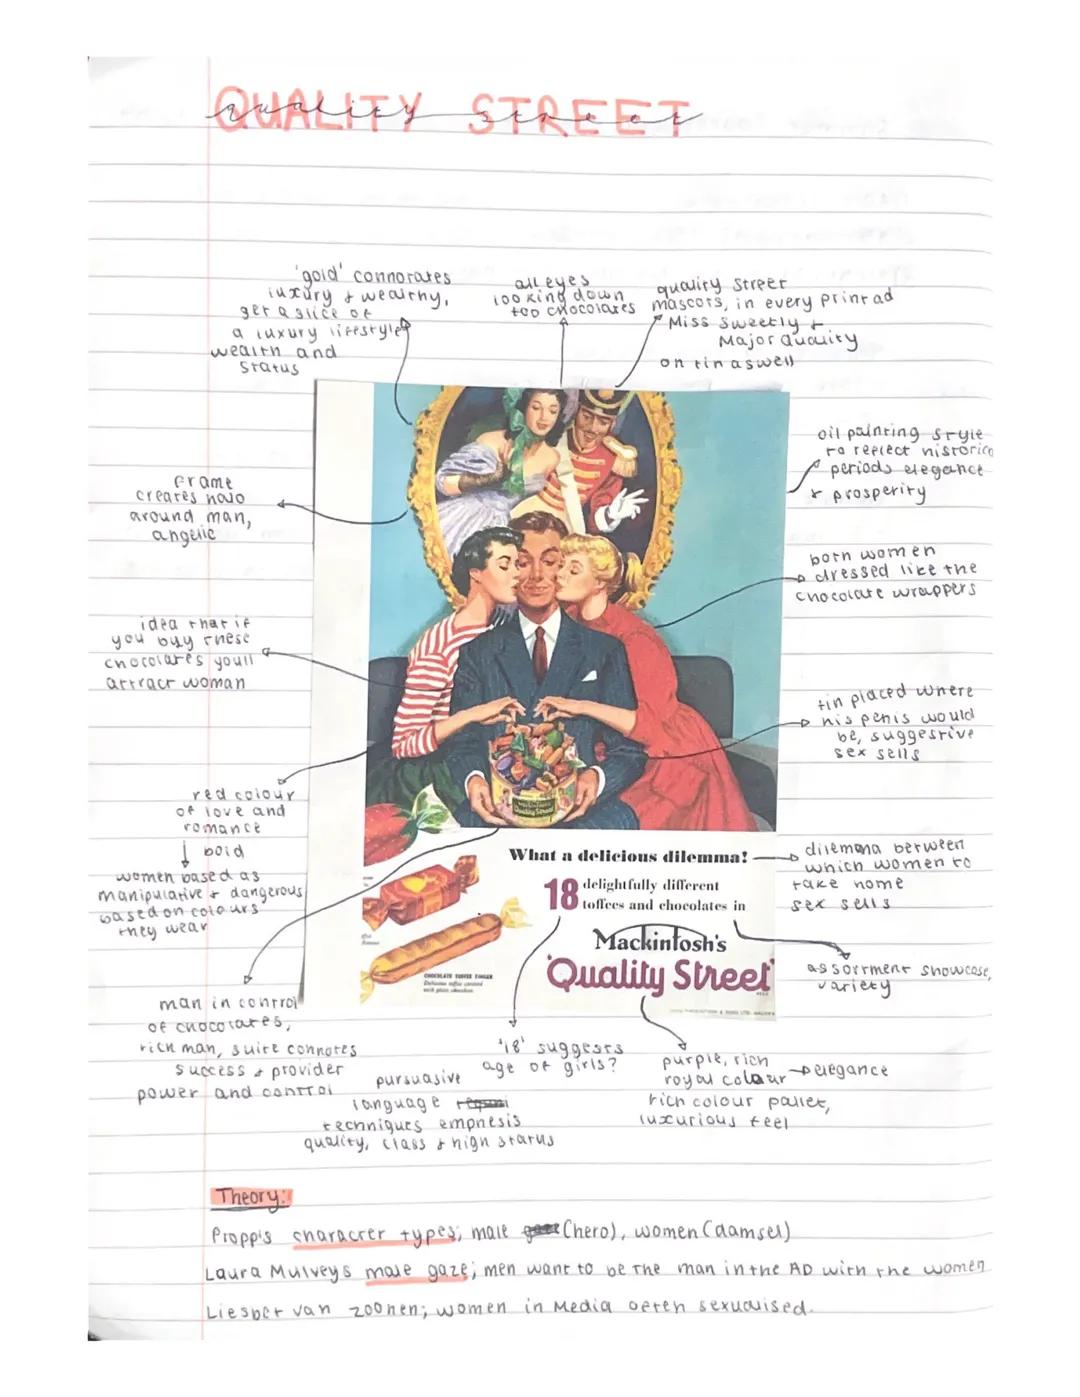 QUALITY STREET
quality street
'gold' connotates
luxury & wealthy,
get a slice of
a luxury lifestyle
wealth and
status
all eyes
looking down
too chocolates
quality street
mascots, in every print ad
Miss Sweetly &
Major Quality
on tin aswell
oil painting style
to reflect historica
periods elegance
& prosperity
frame
creates halo
around man,
angelic
both women
dressed like the
chocolate wrappers
idea that if
you buy these
chocolates youll
attract woman
tin placed where
his penis would
be, suggestive
sex sells
red colour
of love and
romance
bold
women based as
manipulative & dangerous
based on colours
they wear
Mackintosh's
Quality Street
What a delicious dilemma!
18 delightfully different
toffees and chocolates in
Mackintosh's
'Quality Street'
CHOCOLATE TOFFEE FINGER
Delicious toffee covered
with plain chocolate
dilemma between
which women to
take home
sex sells
assortment showcase,
variety
man in control
of chocolates,
rich man, suite connotes
success & provider
power and control
'18' suggests
age of girls?
pursuasive
language
techniques emphesis
quality, class & high status
purple, rich
royal colour elegance
rich colour pallet,
luxurious feel
Theory:
Propp's character types; male (hero), women (damsel)
Laura Mulveys male gaze; men want to be the man in the AD with the women
Liesbet van zoonen; women in Media oeten sexualised.